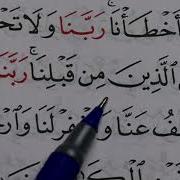 أَخْطَأْنَا ۚ رَبَّنَا وَلَا تَحْ
الَّذِينَ مِن قَبْلِنَا ۚ رَبَّنَا
فُ عَنَّا وَاغْفِرْ لَنَا وَارْ